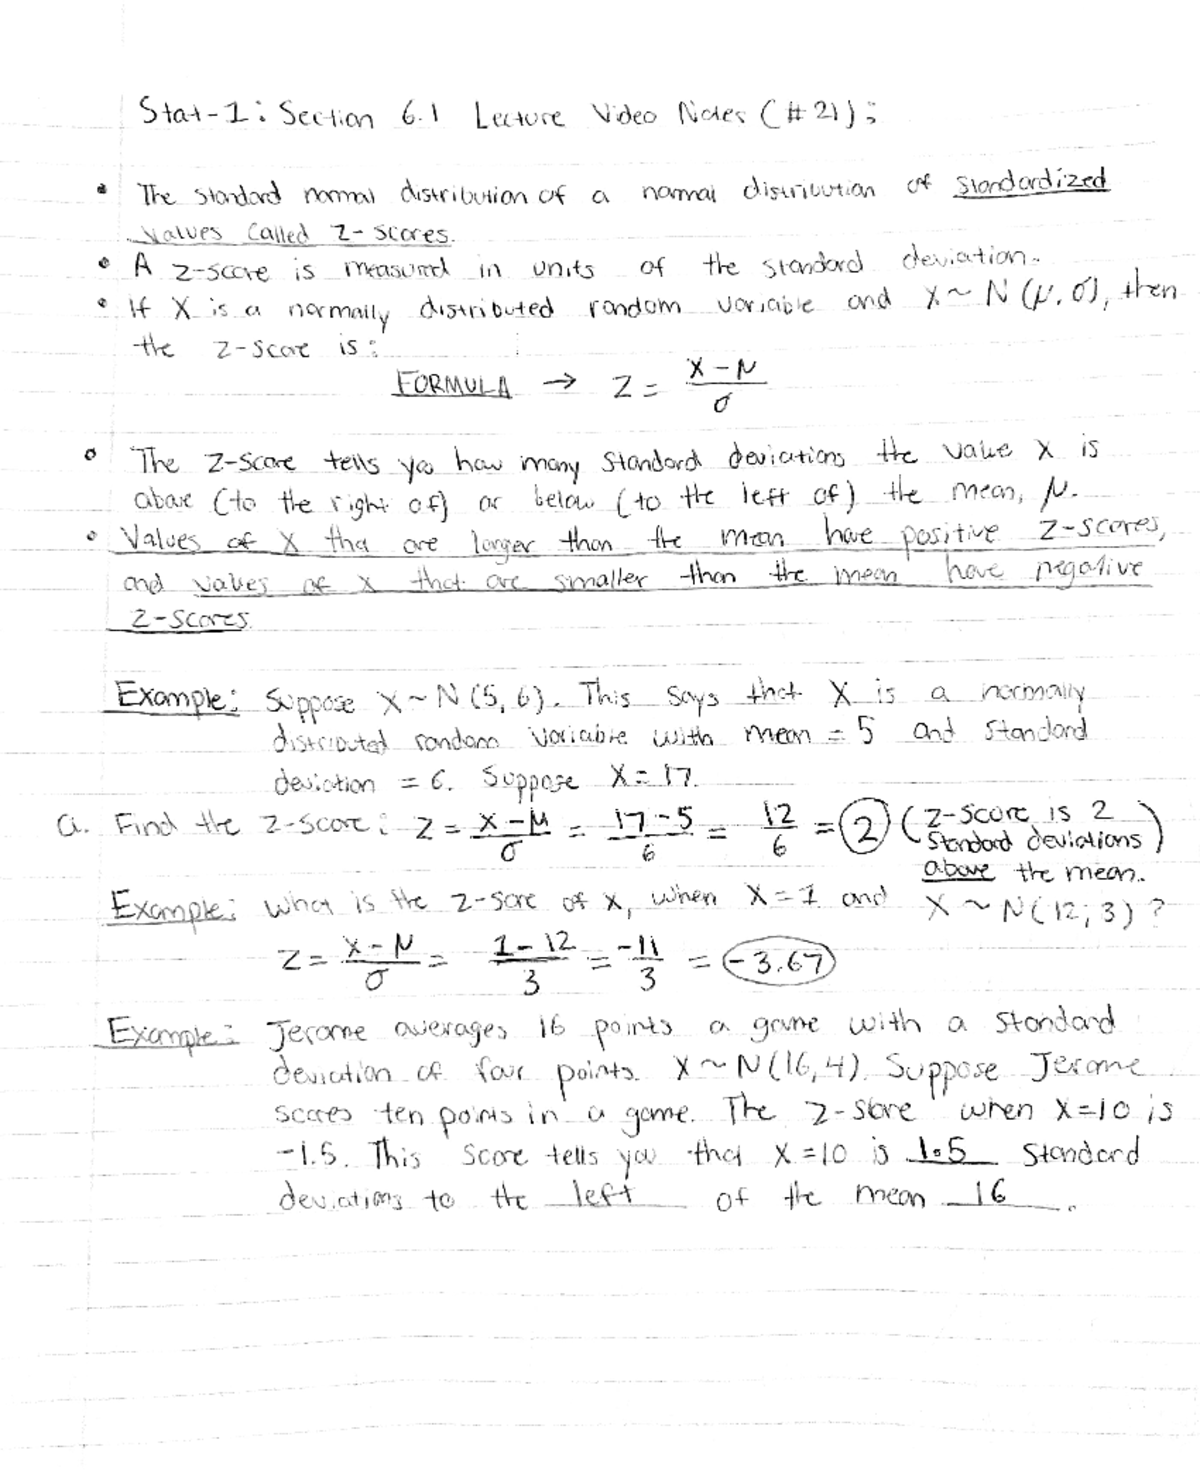 Stat-1: Section 6.1 Lecture Video Notes (#21);
• The standard normal distribution of a normal distribution of standardized
values called z-scores.
• A z-score is measured in units of the standard deviation.
• If X is a normally distributed random variable and X ~ N (μ, σ), then
the z-score is:
FORMULA → z = (x - μ) / σ
• The z-score tells you how many standard deviations the value x is
above (to the right of) or below (to the left of) the mean, μ.
• Values of x tha are larger than the mean have positive z-scores,
and values of x that are smaller than the mean have negative
z-scores.
Example: Suppose X ~ N (5, 6). This says that X is a normally
distributed random variable with mean = 5 and standard
deviation = 6. Suppose X = 17.
a. Find the z-score: z = (x - μ) / σ = (17 - 5) / 6 = 12 / 6 = 2 (z-score is 2
standard deviations
above the mean.)
Example: What is the z-sore of x, when X = 1 and X ~ N(12, 3)?
z = (x - μ) / σ = (1 - 12) / 3 = -11 / 3 = -3.67
Example: Jerome averages 16 points a game with a standard
deviation of four points. X ~ N(16, 4). Suppose Jerome
scores ten points in a game. The z-score when x = 10 is
-1.5. This score tells you that x = 10 is 1.5 standard
deviations to the left of the mean 16.